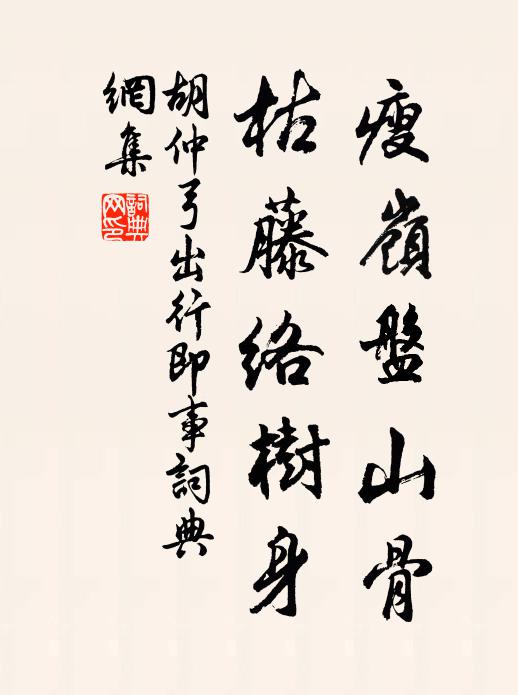 瘦嶺盤山骨
枯藤络樹身
胡仲弓出行即事詞典
網集
詞典
网印